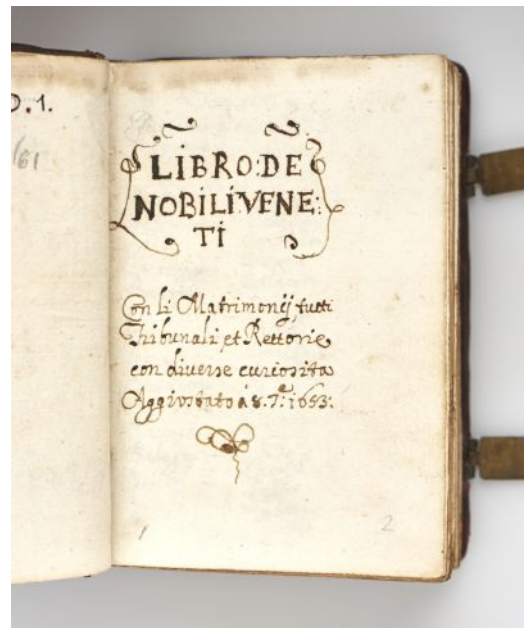 D.1.
/61
LIBRO:DE
NOBILI:VENE:
TI
Con li Matrimonij, tutti
Tribunali, et Rettorie,
con diverse curiosita
Aggiustato á 8. 7.e 1653:
1
2